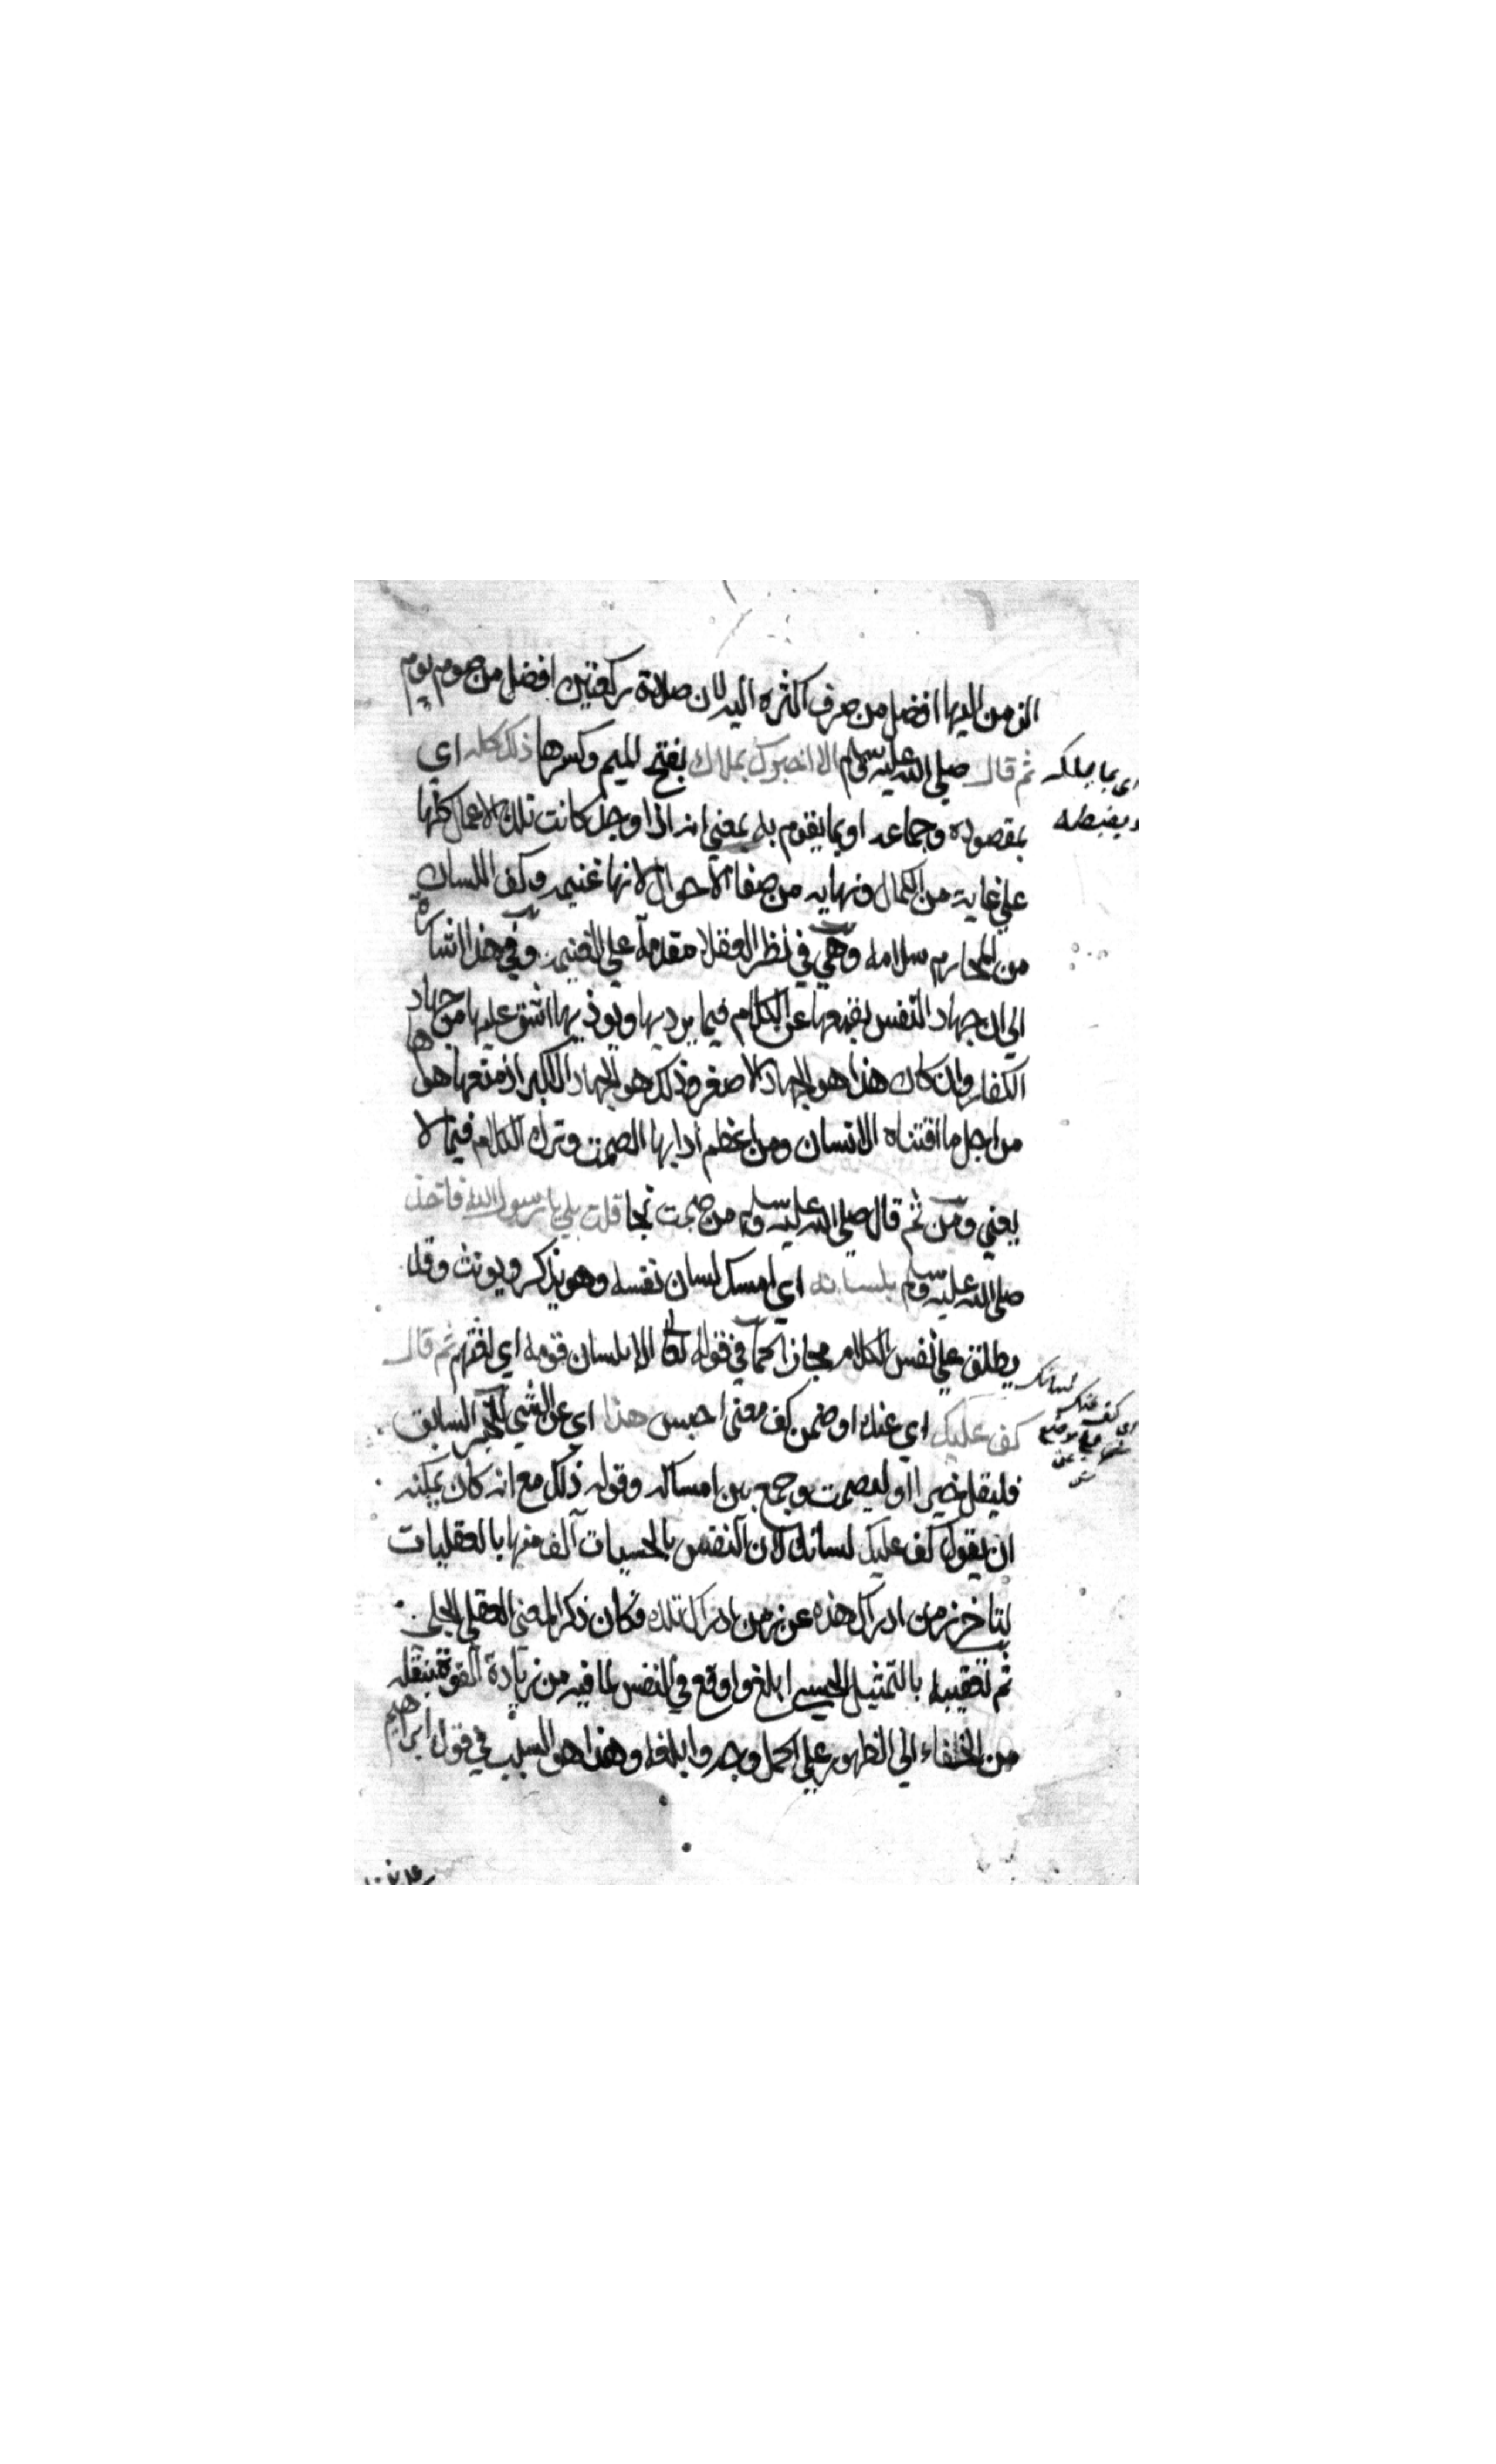 الزمن اليها افضل من صرف اكثره اليه لان صلاة ركعتين افضل من صوم يوم
ثم قال صلى الله عليه وسلم الا اخبرك بملاك بفتح الميم وكسرها ذلك كله اي
بمقصوده وجماعه او بما يقوم به بمعني انه اذا وجد كانت تلك الاعمال كلها
علي غاية من الكمال ونهايه من صفا الاحوال لانها غنيمه وكف اللسان
من المحارم سلامه وهي في نظر العقلا مقدمة علي الغنيمه وفي هذا اشارة
الي ان جهاد النفس بقمعها عن الكلام فيما يرديها ويوذيها اشق عليها من جهاد
الكفار وان كان هذا هو الجهاد الاصغر وذلك هو الجهاد الاكبر اذ منعها هواها
من اجل ما اقتناه الانسان ومن اعظم ادابها الصمت وترك الكلام فيما لا
يعني ومن ثم قال صلى الله عليه وسلم من صمت نجا قلت بلي يا رسول الله فاخذ
صلى الله عليه وسلم بلسانه اي امسك لسان نفسه وهو يذكر ويونث وقد
يطلق علي نفس الكلام مجازا كما في قوله تعالى الا بلسان قومه اي لغتهم ثم قال
كف عليك اي عنك او ضمن كف معني احبس هذا اي عن الشي للخبر السابق
فليقل خيرا او ليصمت وجمع بين امساكه وقوله ذلك مع انه كان يمكنه
ان يقول كف عليك لسانك لان النفس بالحسيات آلف منها بالعقليات
لتاخر زمن ادراك هذه عن زمن ادراك تلك فكان ذكر المعني العقلي الجلي
ثم تعقيبه بالتمثيل الحسي ابلغ واوقع في النفس لما فيه من زيادة القوة بنقله
من الخفاء الي الظهور علي اكمل وجه وابلغه وهذا هو السبب في قول ابراهيم
اي بما يملكه
ويضبطه
لسانك
اي كف عنك